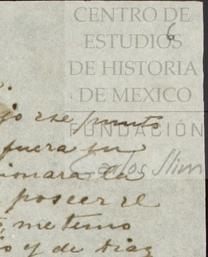 CENTRO DE
ESTUDIOS
DE HISTORIA
DE MEXICO
FUNDACIÓN
Carlos Slim
6
punto
fuera su
poseer el
me temo
y de Diaz